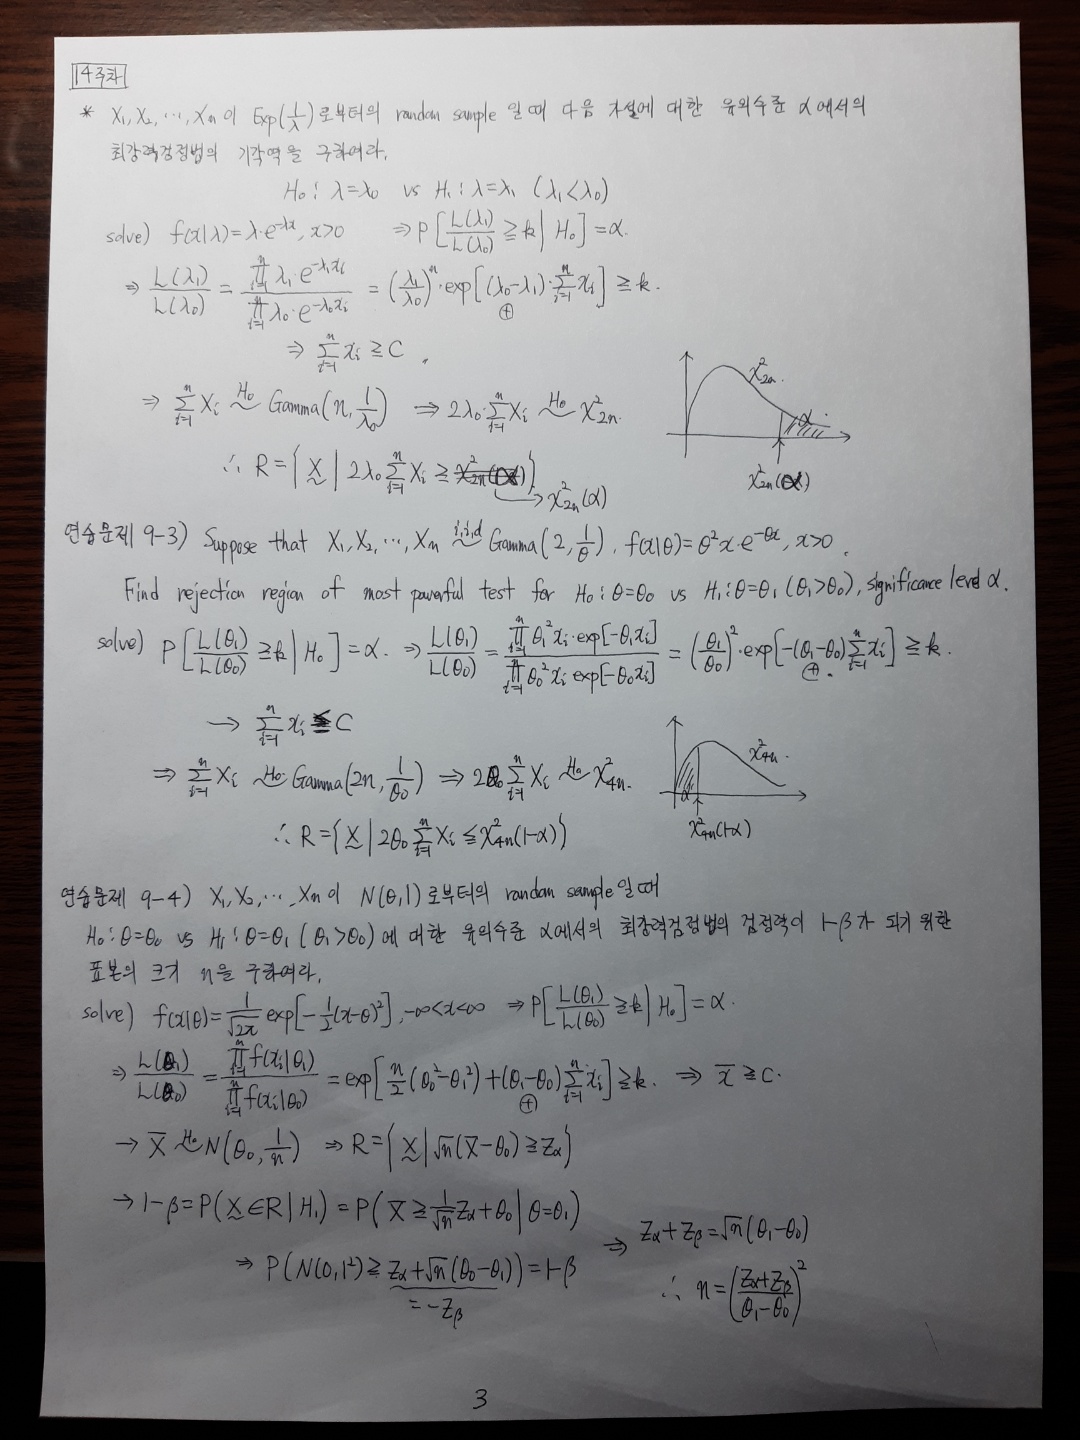 14주차
* X₁, X₂, ⋯, Xₙ이 Exp(1/λ)로부터의 random sample 일 때 다음 가설에 대한 유의수준 α에서의
최강력검정법의 기각역을 구하여라.
H₀ : λ=λ₀ vs H₁ : λ=λ₁ (λ₁<λ₀)
solve) f(x|λ)=λ·e^{-λx}, x>0 ⇒ P[L(λ₁)/L(λ₀) ≧ k | H₀] = α.
⇒ L(λ₁)/L(λ₀) = ∏_{i=1}^{n} λ₁·e^{-λ₁xᵢ} / ∏_{i=1}^{n} λ₀·e^{-λ₀xᵢ} = (λ₁/λ₀)^n · exp[(λ₀-λ₁)·∑_{i=1}^{n} xᵢ] ≧ k.
⊕
⇒ ∑_{i=1}^{n} xᵢ ≧ C.
⇒ ∑_{i=1}^{n} Xᵢ ~^{H₀} Gamma(n, 1/λ₀) ⇒ 2λ₀·∑_{i=1}^{n} Xᵢ ~^{H₀} χ²_{2n}.
χ²_{2n}.
α
χ²_{2n}(α)
∴ R = {X | 2λ₀ ∑_{i=1}^{n} Xᵢ ≧ χ²_{2n}(α)}
→ χ²_{2n}(α)
연습문제 9-3) Suppose that X₁, X₂, ⋯, Xₙ ~^{i.i.d} Gamma(2, 1/θ), f(x|θ)=θ²x·e^{-θx}, x>0.
Find rejection region of most powerful test for H₀ : θ=θ₀ vs H₁ : θ=θ₁ (θ₁>θ₀), significance level α.
solve) P[L(θ₁)/L(θ₀) ≧ k | H₀] = α. ⇒ L(θ₁)/L(θ₀) = ∏_{i=1}^{n} θ₁²xᵢ·exp[-θ₁xᵢ] / ∏_{i=1}^{n} θ₀²xᵢ exp[-θ₀xᵢ] = (θ₁/θ₀)²·exp[-(θ₁-θ₀)∑_{i=1}^{n} xᵢ] ≧ k.
⊕.
→ ∑_{i=1}^{n} xᵢ ≦ C
⇒ ∑_{i=1}^{n} Xᵢ ~^{H₀} Gamma(2n, 1/θ₀) ⇒ 2θ₀ ∑_{i=1}^{n} Xᵢ ~^{H₀} χ²_{4n}.
χ²_{4n}.
α
χ²_{4n}(1-α)
∴ R = {X | 2θ₀ ∑_{i=1}^{n} Xᵢ ≦ χ²_{4n}(1-α)}
연습문제 9-4) X₁, X₂, ⋯, Xₙ이 N(θ,1)로부터의 random sample일 때
H₀ : θ=θ₀ vs H₁ : θ=θ₁ (θ₁>θ₀)에 대한 유의수준 α에서의 최강력검정법의 검정력이 1-β가 되기 위한
표본의 크기 n을 구하여라.
solve) f(x|θ) = 1/√2π exp[-1/2(x-θ)²], -∞<x<∞ ⇒ P[L(θ₁)/L(θ₀) ≧ k | H₀] = α.
⇒ L(θ₁)/L(θ₀) = ∏_{i=1}^{n} f(xᵢ|θ₁) / ∏_{i=1}^{n} f(xᵢ|θ₀) = exp[n/2(θ₀²-θ₁²)+(θ₁-θ₀)∑_{i=1}^{n} xᵢ] ≧ k. ⇒ x̄ ≧ C.
⊕
→ X̄ ~^{H₀} N(θ₀, 1/n) ⇒ R = {X | √n(X̄-θ₀) ≧ Z_α}
→ 1-β = P(X∈R | H₁) = P(X̄ ≧ 1/√n Z_α+θ₀ | θ=θ₁)
⇒ P(N(0,1²) ≧ Z_α+√n(θ₀-θ₁)) = 1-β
= -Z_β
⇒ Z_α+Z_β = √n(θ₁-θ₀)
∴ n = ((Z_α+Z_β)/(θ₁-θ₀))²
3